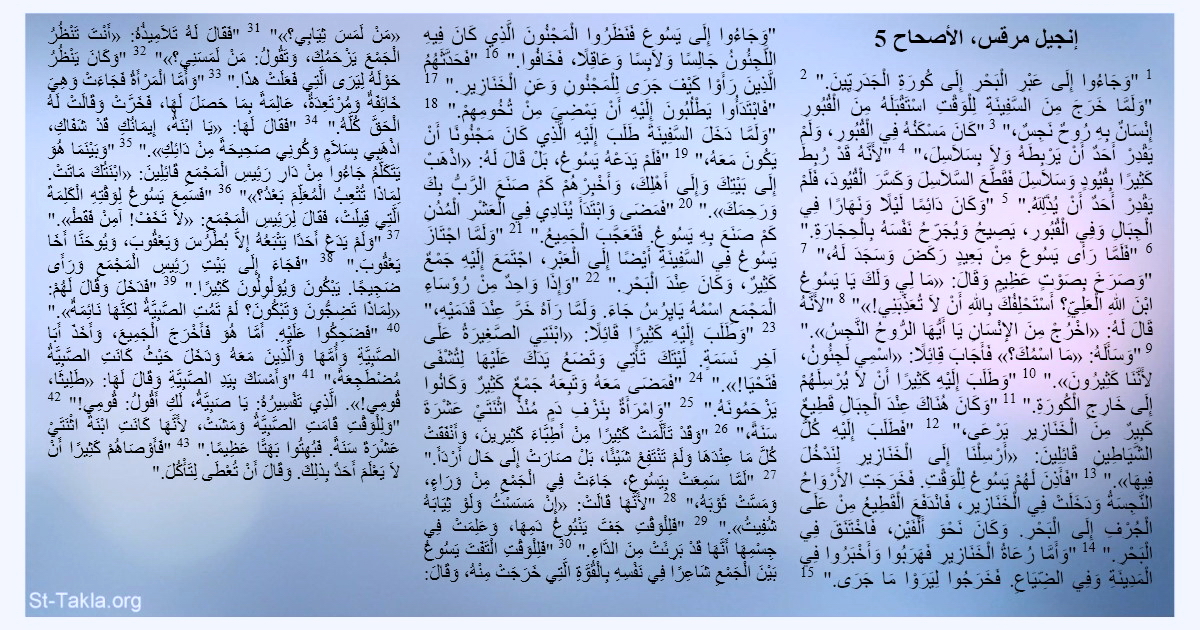 إنجيل مرقس، الأصحاح 5
1 "وَجَاءُوا إِلَى عَبْرِ الْبَحْرِ إِلَى كُورَةِ الْجَدَرِيِّينَ." 2
"وَلَمَّا خَرَجَ مِنَ السَّفِينَةِ لِلْوَقْتِ اسْتَقْبَلَهُ مِنَ الْقُبُورِ
إِنْسَانٌ بِهِ رُوحٌ نَجِسٌ،" 3 "كَانَ مَسْكَنُهُ فِي الْقُبُورِ، وَلَمْ
يَقْدِرْ أَحَدٌ أَنْ يَرْبِطَهُ وَلاَ بِسَلاَسِلَ،" 4 "لأَنَّهُ قَدْ رُبِطَ
كَثِيرًا بِقُيُودٍ وَسَلاَسِلَ فَقَطَّعَ السَّلاَسِلَ وَكَسَّرَ الْقُيُودَ، فَلَمْ
يَقْدِرْ أَحَدٌ أَنْ يُذَلِّلَهُ." 5 "وَكَانَ دَائِمًا لَيْلًا وَنَهَارًا فِي
الْجِبَالِ وَفِي الْقُبُورِ، يَصِيحُ وَيُجَرِّحُ نَفْسَهُ بِالْحِجَارَةِ."
6 "فَلَمَّا رَأَى يَسُوعَ مِنْ بَعِيدٍ رَكَضَ وَسَجَدَ لَهُ،" 7
"وَصَرَخَ بِصَوْتٍ عَظِيمٍ وَقَالَ: «مَا لِي وَلَكَ يَا يَسُوعُ
ابْنَ اللهِ الْعَلِيِّ؟ أَسْتَحْلِفُكَ بِاللهِ أَنْ لاَ تُعَذِّبَنِي!»" 8 "لأَنَّهُ
قَالَ لَهُ: «اخْرُجْ مِنَ الإِنْسَانِ يَا أَيُّهَا الرُّوحُ النَّجِسُ»."
9 "وَسَأَلَهُ: «مَا اسْمُكَ؟» فَأَجَابَ قَائِلًا: «اسْمِي لَجِئُونُ،
لأَنَّنَا كَثِيرُونَ»." 10 "وَطَلَبَ إِلَيْهِ كَثِيرًا أَنْ لاَ يُرْسِلَهُمْ
إِلَى خَارِجِ الْكُورَةِ." 11 "وَكَانَ هُنَاكَ عِنْدَ الْجِبَالِ قَطِيعٌ
كَبِيرٌ مِنَ الْخَنَازِيرِ يَرْعَى،" 12 "فَطَلَبَ إِلَيْهِ كُلُّ
الشَّيَاطِينِ قَائِلِينَ: «أَرْسِلْنَا إِلَى الْخَنَازِيرِ لِنَدْخُلَ
فِيهَا»." 13 "فَأَذِنَ لَهُمْ يَسُوعُ لِلْوَقْتِ. فَخَرَجَتِ الأَرْوَاحُ
النَّجِسَةُ وَدَخَلَتْ فِي الْخَنَازِيرِ، فَانْدَفَعَ الْقَطِيعُ مِنْ عَلَى
الْجُرْفِ إِلَى الْبَحْرِ. وَكَانَ نَحْوَ أَلْفَيْنِ، فَاخْتَنَقَ فِي
الْبَحْرِ." 14 "وَأَمَّا رُعَاةُ الْخَنَازِيرِ فَهَرَبُوا وَأَخْبَرُوا فِي
الْمَدِينَةِ وَفِي الضِّيَاعِ. فَخَرَجُوا لِيَرَوْا مَا جَرَى." 15
"وَجَاءُوا إِلَى يَسُوعَ فَنَظَرُوا الْمَجْنُونَ الَّذِي كَانَ فِيهِ
اللَّجِئُونُ جَالِسًا وَلاَبِسًا وَعَاقِلًا، فَخَافُوا." 16 "فَحَدَّثَهُمُ
الَّذِينَ رَأَوْا كَيْفَ جَرَى لِلْمَجْنُونِ وَعَنِ الْخَنَازِيرِ." 17
"فَابْتَدَأُوا يَطْلُبُونَ إِلَيْهِ أَنْ يَمْضِيَ مِنْ تُخُومِهِمْ." 18
"وَلَمَّا دَخَلَ السَّفِينَةَ طَلَبَ إِلَيْهِ الَّذِي كَانَ مَجْنُونًا أَنْ
يَكُونَ مَعَهُ،" 19 "فَلَمْ يَدَعْهُ يَسُوعُ، بَلْ قَالَ لَهُ: «اذْهَبْ
إِلَى بَيْتِكَ وَإِلَى أَهْلِكَ، وَأَخْبِرْهُمْ كَمْ صَنَعَ الرَّبُّ بِكَ
وَرَحِمَكَ»." 20 "فَمَضَى وَابْتَدَأَ يُنَادِي فِي الْعَشْرِ الْمُدُنِ
كَمْ صَنَعَ بِهِ يَسُوعُ. فَتَعَجَّبَ الْجَمِيعُ." 21 "وَلَمَّا اجْتَازَ
يَسُوعُ فِي السَّفِينَةِ أَيْضًا إِلَى الْعَبْرِ، اجْتَمَعَ إِلَيْهِ جَمْعٌ
كَثِيرٌ، وَكَانَ عِنْدَ الْبَحْرِ." 22 "وَإِذَا وَاحِدٌ مِنْ رُؤَسَاءِ
الْمَجْمَعِ اسْمُهُ يَايِرُسُ جَاءَ. وَلَمَّا رَآهُ خَرَّ عِنْدَ قَدَمَيْهِ،"
23 "وَطَلَبَ إِلَيْهِ كَثِيرًا قَائِلًا: «ابْنَتِي الصَّغِيرَةُ عَلَى
آخِرِ نَسَمَةٍ. لَيْتَكَ تَأْتِي وَتَضَعُ يَدَكَ عَلَيْهَا لِتُشْفَى
فَتَحْيَا!»." 24 "فَمَضَى مَعَهُ وَتَبِعَهُ جَمْعٌ كَثِيرٌ وَكَانُوا
يَزْحَمُونَهُ." 25 "وَامْرَأَةٌ بِنَزْفِ دَمٍ مُنْذُ اثْنَتَيْ عَشْرَةَ
سَنَةً،" 26 "وَقَدْ تَأَلَّمَتْ كَثِيرًا مِنْ أَطِبَّاءَ كَثِيرِينَ، وَأَنْفَقَتْ
كُلَّ مَا عِنْدَهَا وَلَمْ تَنْتَفِعْ شَيْئًا، بَلْ صَارَتْ إِلَى حَال أَرْدَأَ."
27 "لَمَّا سَمِعَتْ بِيَسُوعَ، جَاءَتْ فِي الْجَمْعِ مِنْ وَرَاءٍ،
وَمَسَّتْ ثَوْبَهُ،" 28 "لأَنَّهَا قَالَتْ: «إِنْ مَسَسْتُ وَلَوْ ثِيَابَهُ
شُفِيتُ»." 29 "فَلِلْوَقْتِ جَفَّ يَنْبُوعُ دَمِهَا، وَعَلِمَتْ فِي
جِسْمِهَا أَنَّهَا قَدْ بَرِئَتْ مِنَ الدَّاءِ." 30 "فَلِلْوَقْتِ الْتَفَتَ يَسُوعُ
بَيْنَ الْجَمْعِ شَاعِرًا فِي نَفْسِهِ بِالْقُوَّةِ الَّتِي خَرَجَتْ مِنْهُ، وَقَالَ:
«مَنْ لَمَسَ ثِيَابِي؟»" 31 "فَقَالَ لَهُ تَلاَمِيذُهُ: «أَنْتَ تَنْظُرُ
الْجَمْعَ يَزْحَمُكَ، وَتَقُولُ: مَنْ لَمَسَنِي؟»" 32 "وَكَانَ يَنْظُرُ
حَوْلَهُ لِيَرَى الَّتِي فَعَلَتْ هذَا." 33 "وَأَمَّا الْمَرْأَةُ فَجَاءَتْ وَهِيَ
خَائِفَةٌ وَمُرْتَعِدَةٌ، عَالِمَةً بِمَا حَصَلَ لَهَا، فَخَرَّتْ وَقَالَتْ لَهُ
الْحَقَّ كُلَّهُ." 34 "فَقَالَ لَهَا: «يَا ابْنَةُ، إِيمَانُكِ قَدْ شَفَاكِ،
اذْهَبِي بِسَلاَمٍ وَكُونِي صَحِيحَةً مِنْ دَائِكِ»." 35 "وَبَيْنَمَا هُوَ
يَتَكَلَّمُ جَاءُوا مِنْ دَارِ رَئِيسِ الْمَجْمَعِ قَائِلِينَ: «ابْنَتُكَ مَاتَتْ.
لِمَاذَا تُتْعِبُ الْمُعَلِّمَ بَعْدُ؟»" 36 "فَسَمِعَ يَسُوعُ لِوَقْتِهِ الْكَلِمَةَ
الَّتِي قِيلَتْ، فَقَالَ لِرَئِيسِ الْمَجْمَعِ: «لاَ تَخَفْ! آمِنْ فَقَطْ»."
37 "وَلَمْ يَدَعْ أَحَدًا يَتْبَعُهُ إِلاَّ بُطْرُسَ وَيَعْقُوبَ، وَيُوحَنَّا أَخَا
يَعْقُوبَ." 38 "فَجَاءَ إِلَى بَيْتِ رَئِيسِ الْمَجْمَعِ وَرَأَى
ضَجِيجًا. يَبْكُونَ وَيُوَلْوِلُونَ كَثِيرًا." 39 "فَدَخَلَ وَقَالَ لَهُمْ:
«لِمَاذَا تَضِجُّونَ وَتَبْكُونَ؟ لَمْ تَمُتِ الصَّبِيَّةُ لكِنَّهَا نَائِمَةٌ»."
40 "فَضَحِكُوا عَلَيْهِ. أَمَّا هُوَ فَأَخْرَجَ الْجَمِيعَ، وَأَخَذَ أَبَا
الصَّبِيَّةِ وَأُمَّهَا وَالَّذِينَ مَعَهُ وَدَخَلَ حَيْثُ كَانَتِ الصَّبِيَّةُ
مُضْطَجِعَةً،" 41 "وَأَمْسَكَ بِيَدِ الصَّبِيَّةِ وَقَالَ لَهَا: «طَلِيثَا،
قُومِي!». الَّذِي تَفْسِيرُهُ: يَا صَبِيَّةُ، لَكِ أَقُولُ: قُومِي!" 42
"وَلِلْوَقْتِ قَامَتِ الصَّبِيَّةُ وَمَشَتْ، لأَنَّهَا كَانَتِ ابْنَةَ اثْنَتَيْ
عَشْرَةَ سَنَةً. فَبُهِتُوا بَهَتًا عَظِيمًا." 43 "فَأَوْصَاهُمْ كَثِيرًا أَنْ
لاَ يَعْلَمَ أَحَدٌ بِذلِكَ. وَقَالَ أَنْ تُعْطَى لِتَأْكُلَ."
St-Takla.org